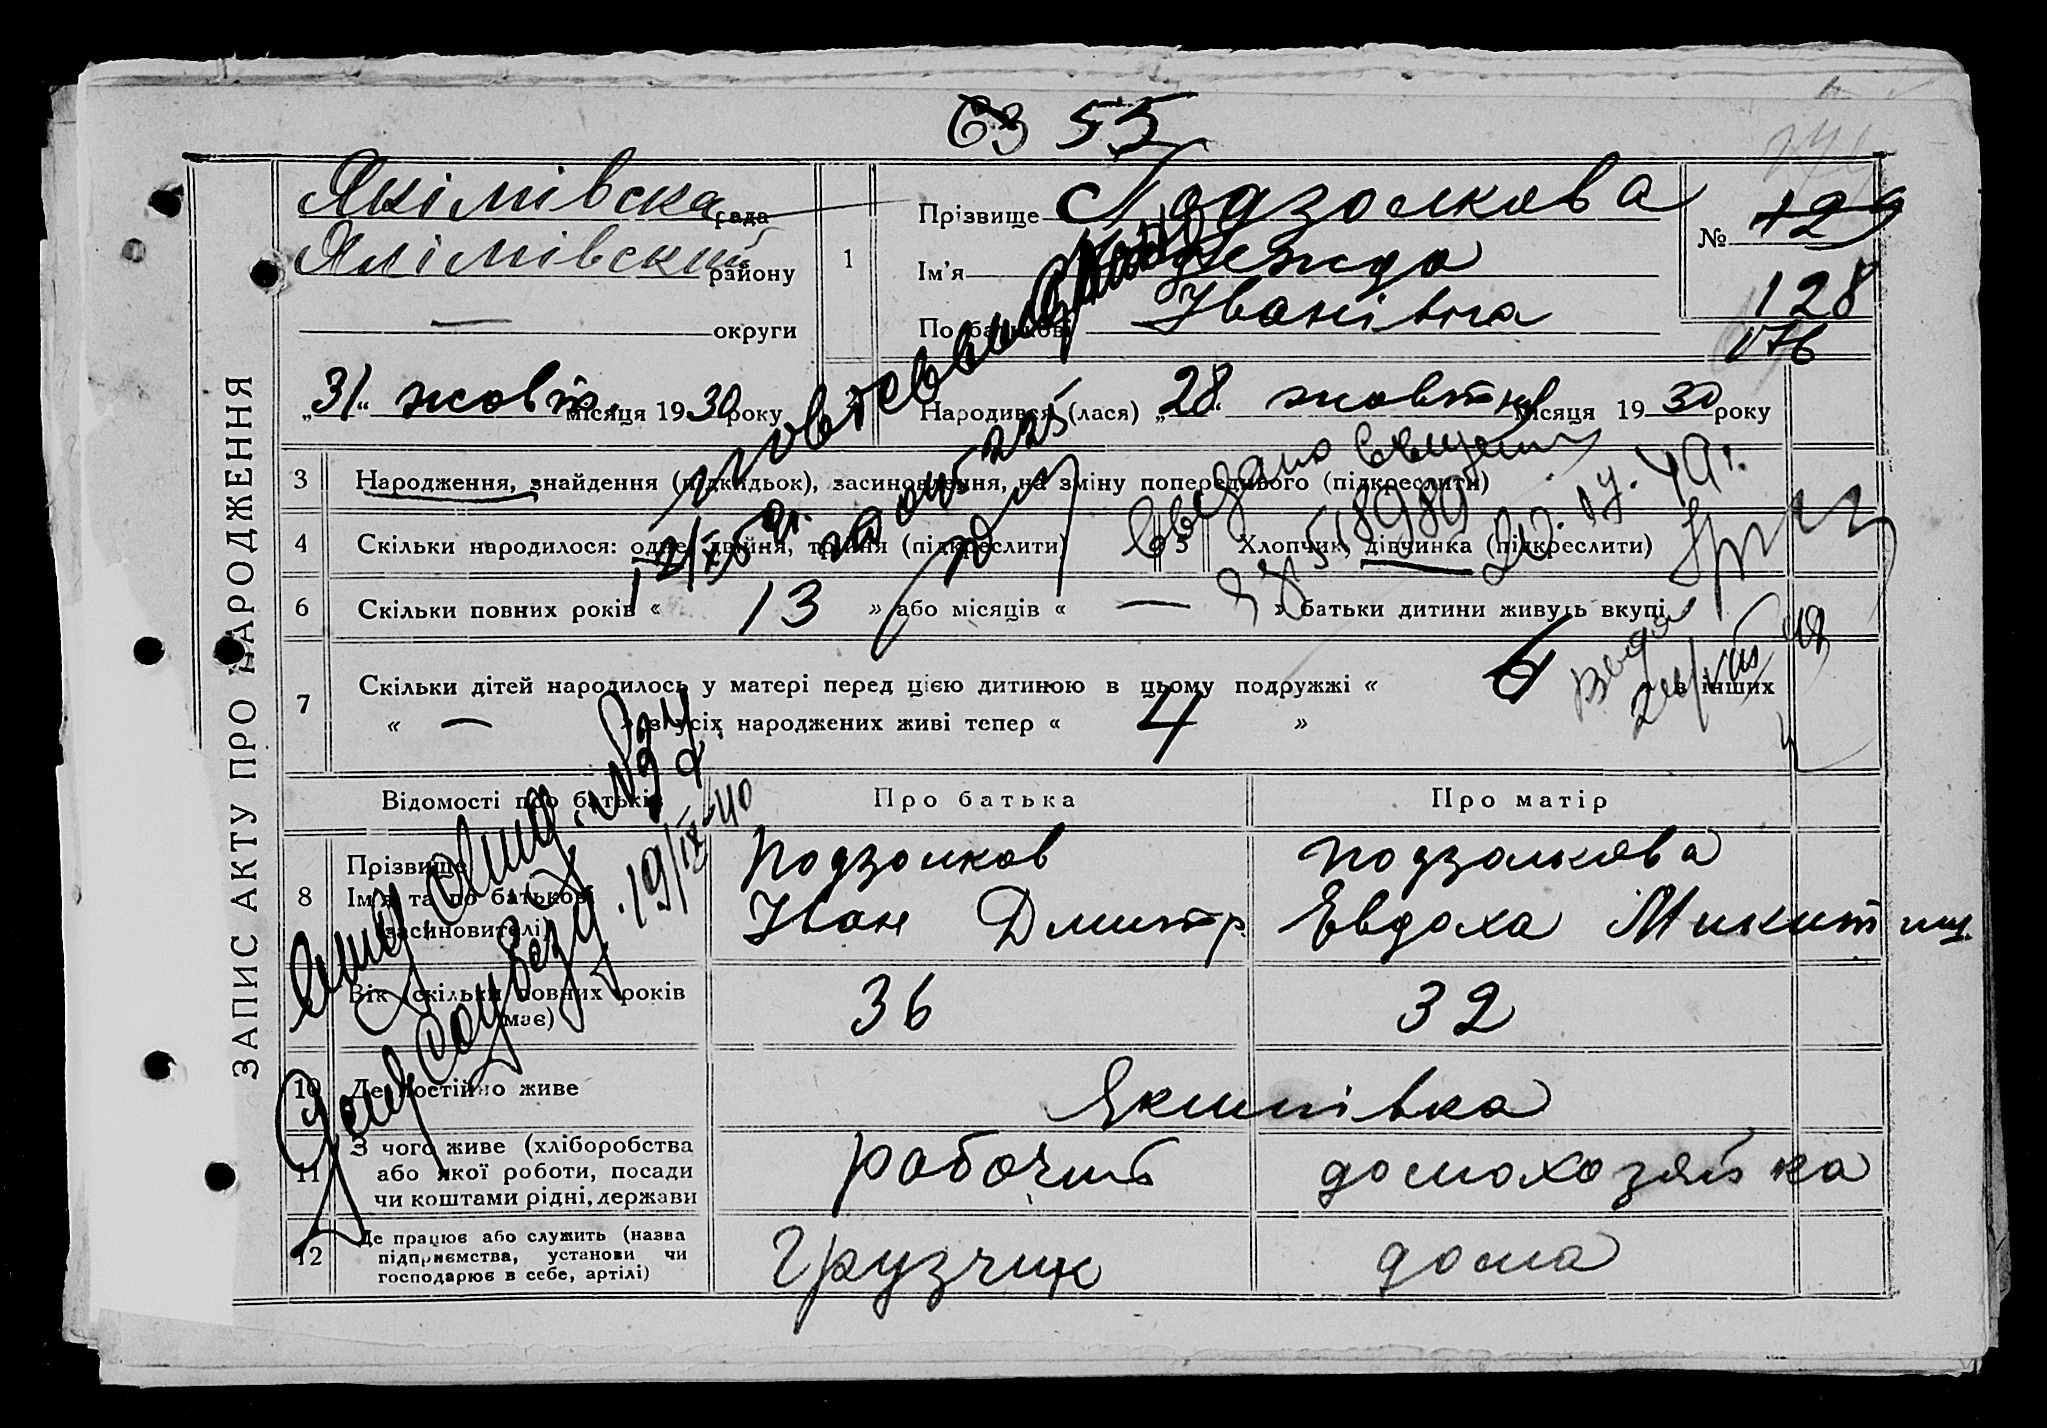 63 55
Якімівска рада
Якімівский району
— округи
ЗАПИС АКТУ ПРО НАРОДЖЕННЯ
1
Прізвище Подзолкова
Ім'я Надежда
По батькові Іванівна
№ 129
128
176
„31“ жовт. місяця 1930 року
Народився (лася) „28“ жовтня місяця 1930 року
3 Народження, знайдення (підкидьок), засиновлення, на зміну попереднього (підкреслити)
4 Скільки народилося: одне, двійня, трійня (підкреслити)
5 Хлопчик, дівчинка (підкреслити)
6 Скільки повних років « 13 » або місяців « — » батьки дитини живуть вкупі
7 Скільки дітей народилось у матері перед цією дитиною в цьому подружжі « 6 в інших
« — » з усіх народжених живі тепер « 4 »
Відомості про батьків
Про батька
Про матір
8 Прізвище
Ім'я та по батькові
засиновителі)
Подзолков
Іван Дмитр.
Подзолкова
Евдоха Микит
Вік (скільки повних років
має)
36
32
10 Де постійно живе
Якимівка
11 З чого живе (хліборобства
або якої роботи, посади
чи коштами рідні, держави
рабочий
домохозяйка
12 Де працює або служить (назва
підприємства, установи чи
господарює в себе, артілі)
грузчик
дома
19/IX-40